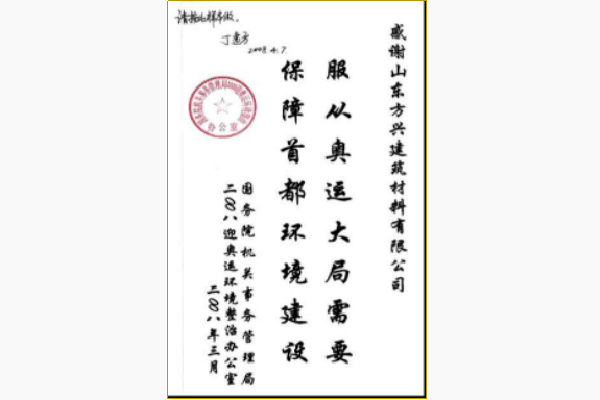 请按此样书做。
丁建方
2008.4.7.
感谢山东方兴建筑材料有限公司
服从奥运大局需要
保障首都环境建设
国务院机关事务管理局
二〇〇八迎奥运环境整治办公室
二〇〇八年三月
办公室